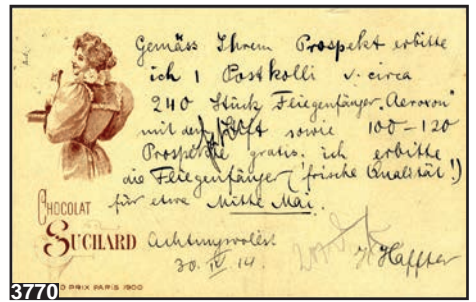 Gemäss Ihrem Prospekt erbitte
ich 1 Postkolli v. circa
240 Stück Fliegenfänger „Aeroxon"
mit dem Stift sowie 100-120
Prospekte gratis. ich erbitte
die Fliegenfänger (frische Qualität!)
für etwa Mitte Mai.
CHOCOLAT
SUCHARD
Achtungsvollst
30. IV. 14.
Haffter
D PRIX PARIS 1900
3770